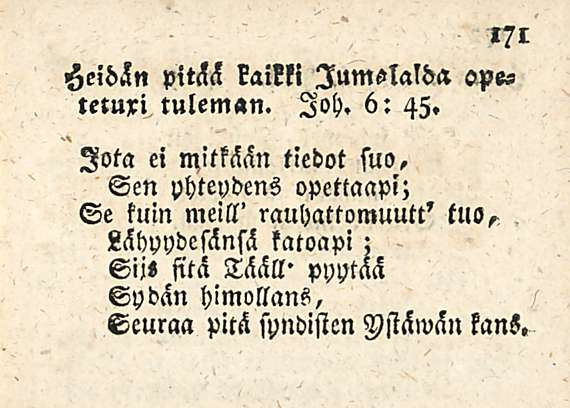 171
Heidän pitää kaikki Jumalalda ope=
tetuxi tuleman. Joh. 6: 45.
Jota ei mitkään tiedot suo,
Sen yhteydens opettaapi;
Se kuin meill' rauhattomuutt' tuo,
Lähyydesänsä katoapi;
Siis sitä Tääll' pyytää
Sydän himollans,
Seuraa pitä syndisten Ystäwän kans.